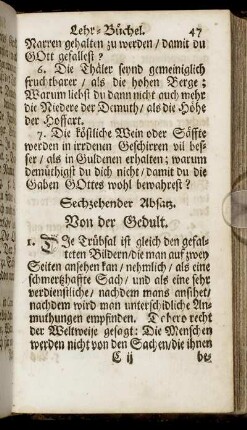 Lehr-Büchel. 47
Narren gehalten zu werden / damit du
GOtt gefallest?
6. Die Thäler seynd gemeiniglich
fruchtbarer / als die hohen Berge;
Warum liebst du dann nicht auch mehr
die Niedere der Demuth / als die Höhe
der Hoffart.
7. Die köstliche Wein oder Säffte
werden in irrdenen Geschirren vil bes-
ser / als in Guldenen erhalten; warum
demüthigst du dich nicht / damit du die
Gaben GOttes wohl bewahrest?
Sechzehender Absatz.
Von der Gedult.
1. DIe Trübsal ist gleich den gefal-
teten Bildern / die man auf zwey
Seiten ansehen kan / nehmlich / als eine
schmertzhaffte Sach / und als eine sehr
verdienstliche / nachdem mans ansihet /
nachdem wird man unterschidliche An-
muthungen empfinden. Dahero recht
der Weltweise gesagt: Die Menschen
werden nicht von den Sachen / die ihnen
C ij be-